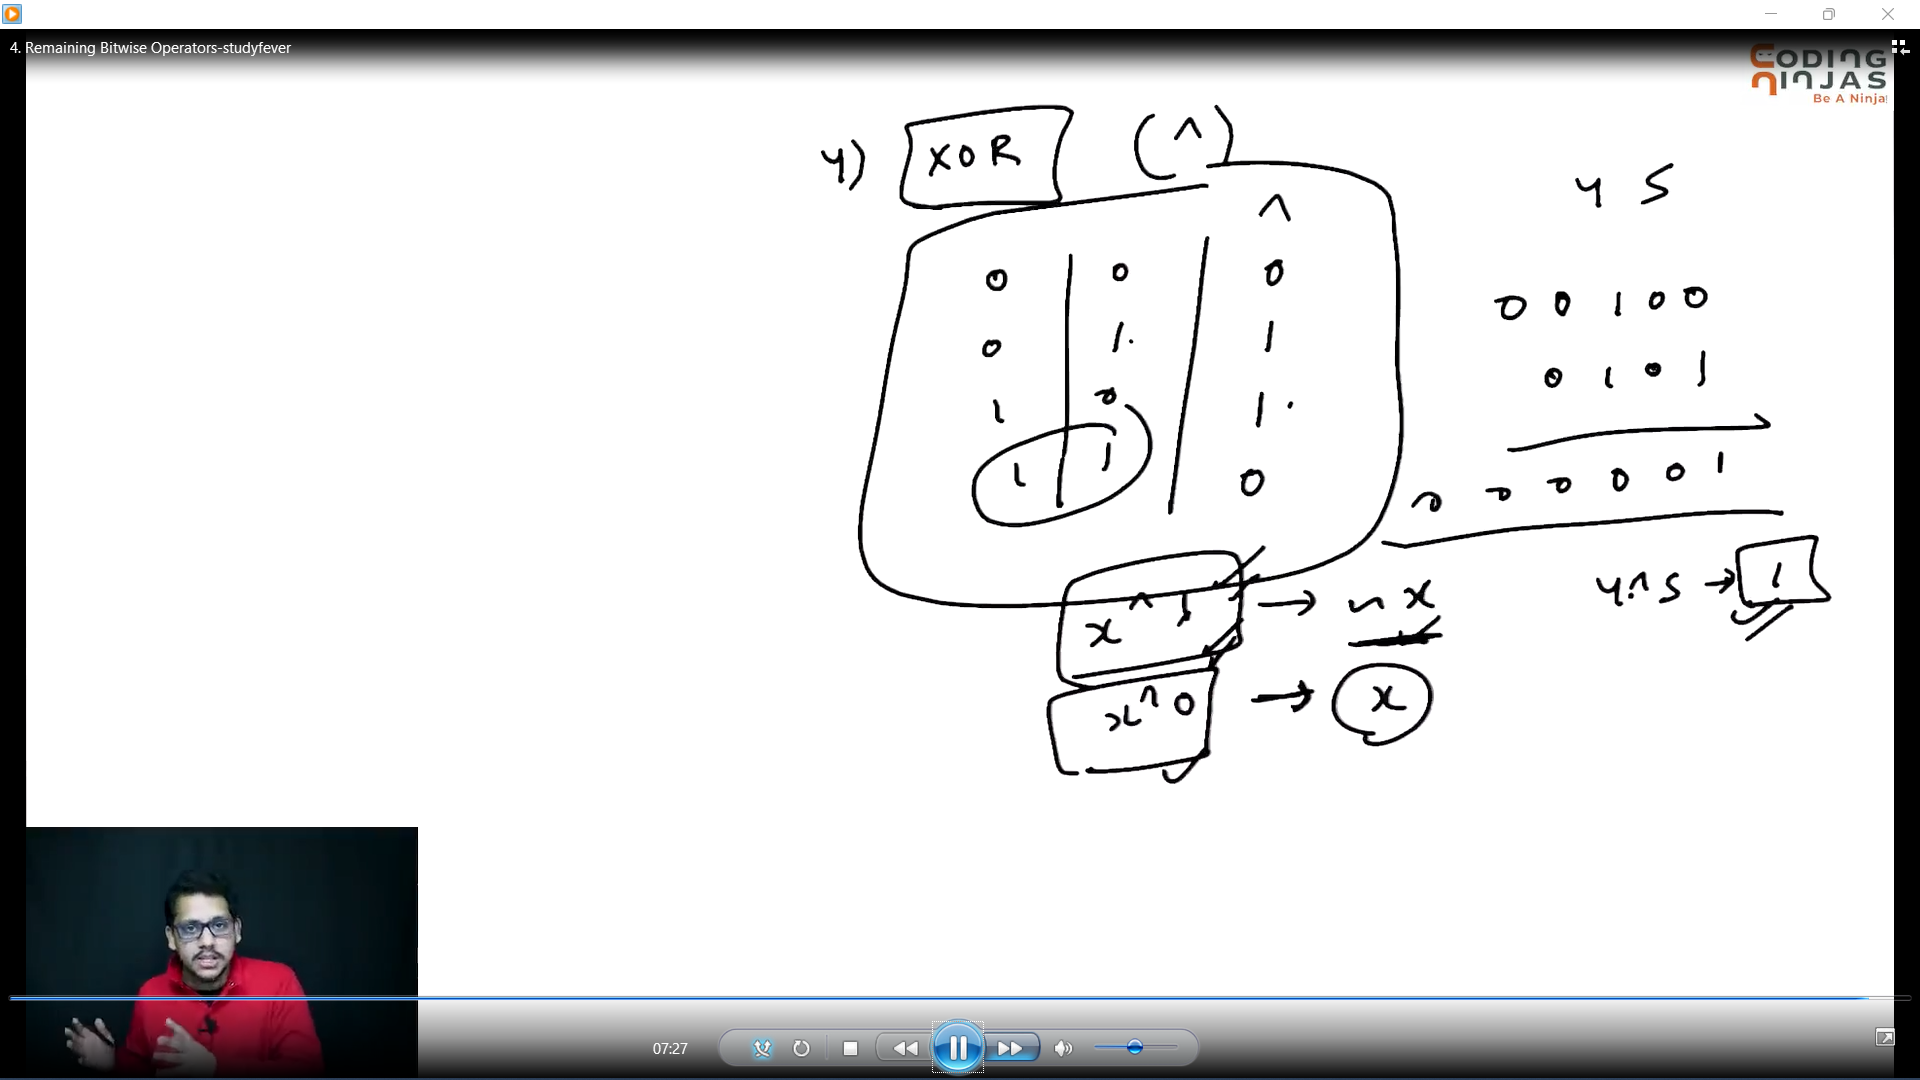 4. Remaining Bitwise Operators-studyfever
CODING
NINJAS
Be A Ninja
4) XOR (^)
^
0 0 0
0 1 1
1 0 1
1 1 0
4 5
0 0 1 0 0
0 1 0 1
0 0 0 0 0 1
4^5 → 1
x ^ 1 → ~x
x^0 → x
07:27